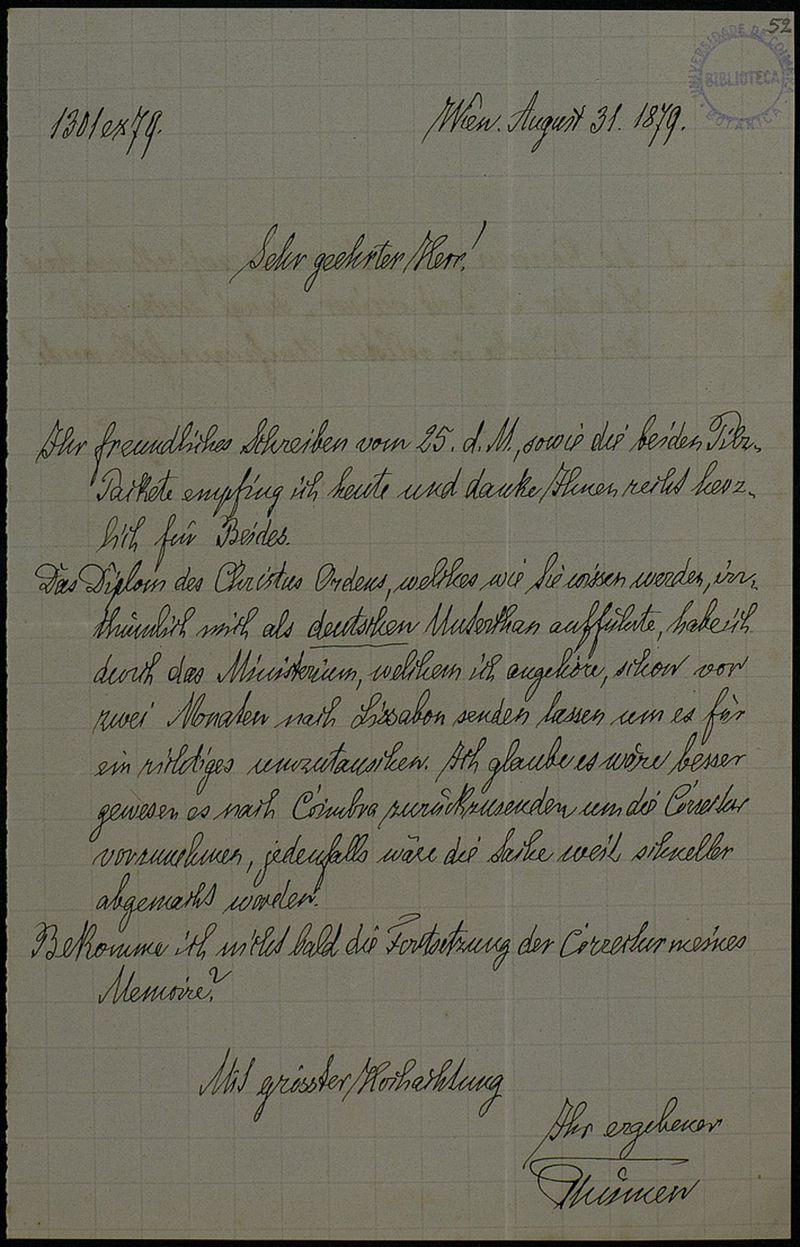 52
UNIVERSIDADE DE COIMBRA
BIBLIOTECA
BOTANICA
1301 ex 79.
Wien. August 31. 1879.
Sehr geehrter Herr!
Ihr freundliches Schreiben vom 25. d. M., sowie die beiden Pilz-
Packete empfing ich heute und danke Ihnen recht herz-
lich für Beides.
Das Diplom des Christus Ordens, welches wie Sie wissen werden, irr-
thümlich mich als deutschen Unterthan aufführte, habe ich
durch das Ministerium, welchem ich angehöre, schon vor
zwei Monaten nach Lissabon senden lassen um es für
ein richtiges umzutauschen. Ich glaube es wäre besser
gewesen es nach Coimbra zurückzusenden um die Correctur
vorzunehmen, jedenfalls wäre die Sache weit schneller
abgemacht worden.
Bekomme ich nicht bald die Fortsetzung der Correctur meines
Memoire?
Mit grösster Hochachtung
Ihr ergebener
Thümen